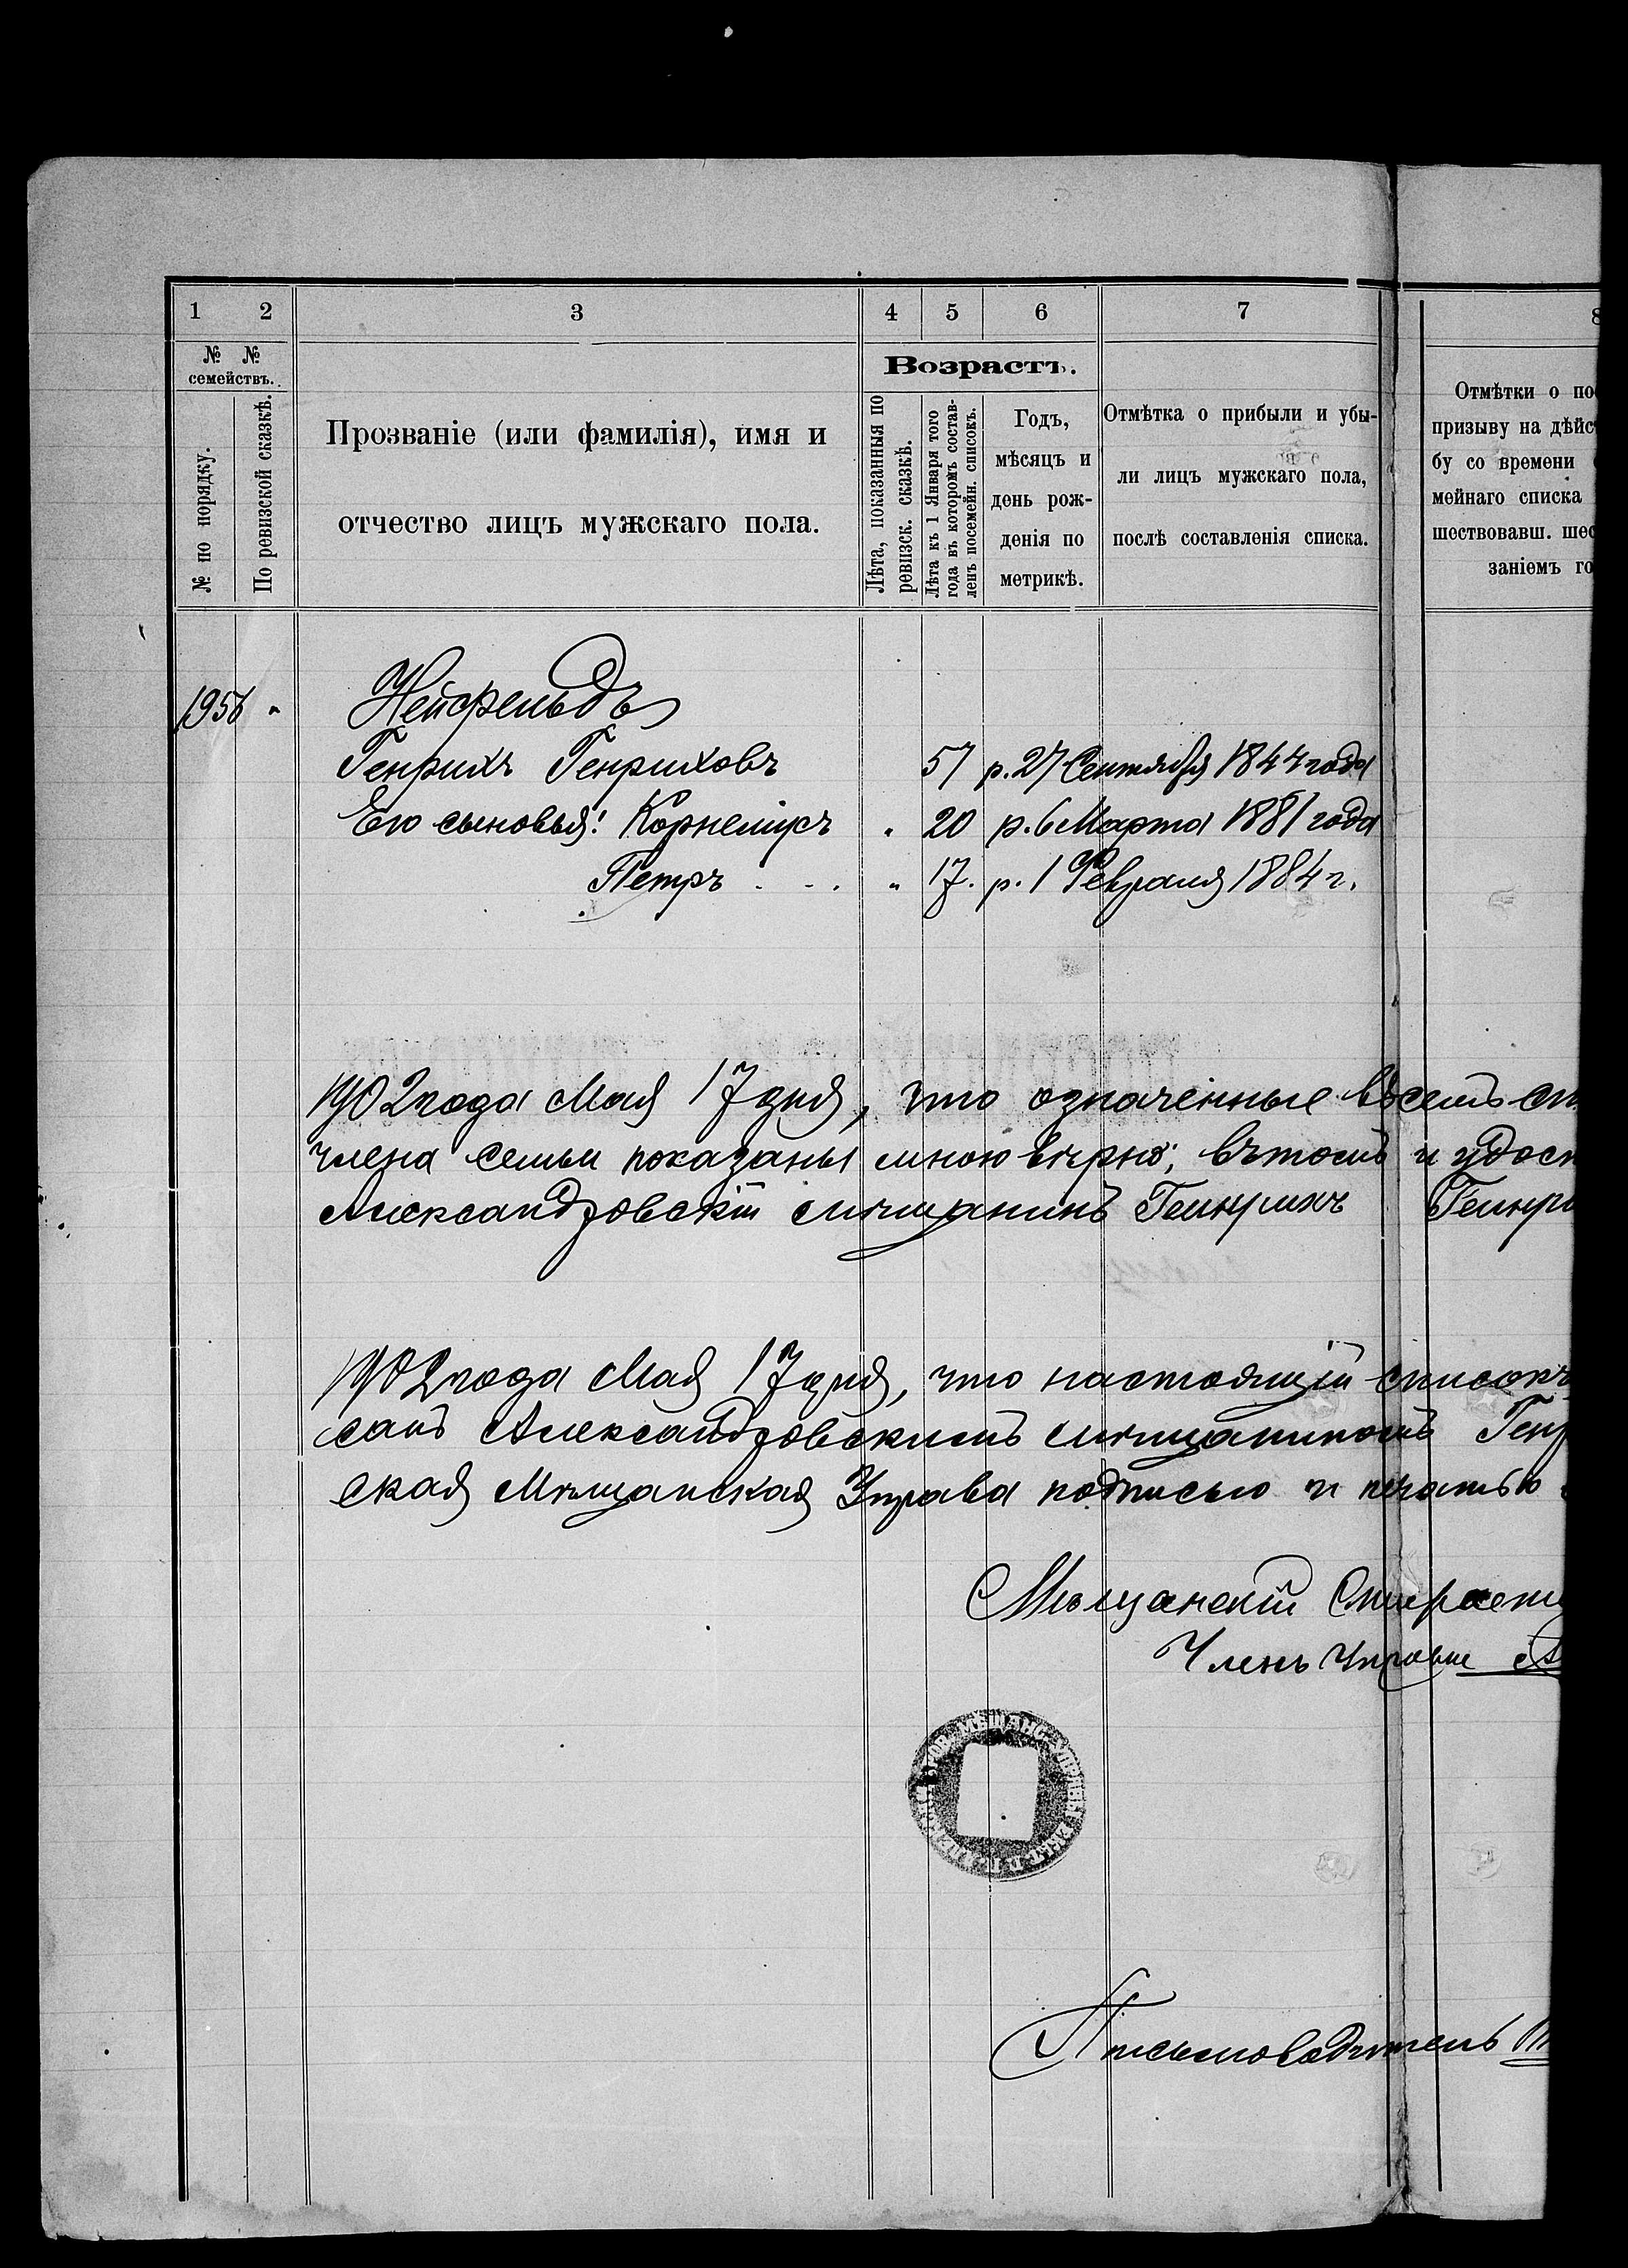 1 2 3 4 5 6 7 8
№ № семействъ.
№ по порядку.
По ревизской сказкѣ.
Прозваніе (или фамилія), имя и
отчество лицъ мужскаго пола.
Возрастъ.
Лѣта, показанныя по
ревизск. сказкѣ.
Лѣта къ 1 Января того
года въ которомъ состав-
ленъ посемейн. списокъ.
Годъ,
мѣсяцъ и
день рож-
денія по
метрикѣ.
Отмѣтка о прибыли и убы-
ли лицъ мужскаго пола,
послѣ составленія списка.
Отмѣтки о по
призыву на дѣйс
бу со времени
мейнаго списка
шествовавш. шес
заніемъ го
1956 "
Нейфельдъ
Генрихъ Генриховъ 57 р. 27 Сентября 1844 года
Его сыновья: Корнеліусъ " 20 р. 6 Марта 1881 года
Петръ . . . " 17. р. 1 Февраля 1884 г.
1902 года Мая 17 дня, что означенные въ семъ сп
члена семьи показаны мною вѣрно, въ томъ и удост
Александровскій мѣщанинъ Генрихъ Генри
1902 года Мая 17 дня, что настоящій списокъ
санъ Александровскимъ мѣщаниномъ Генр
ская Мѣщанская Управа подписью и печатью
Мѣщанскій Старост
Членъ Управы А
МѢЩАНС. УПРАВЫ ЕКАТ. Г.
Письмоводитель